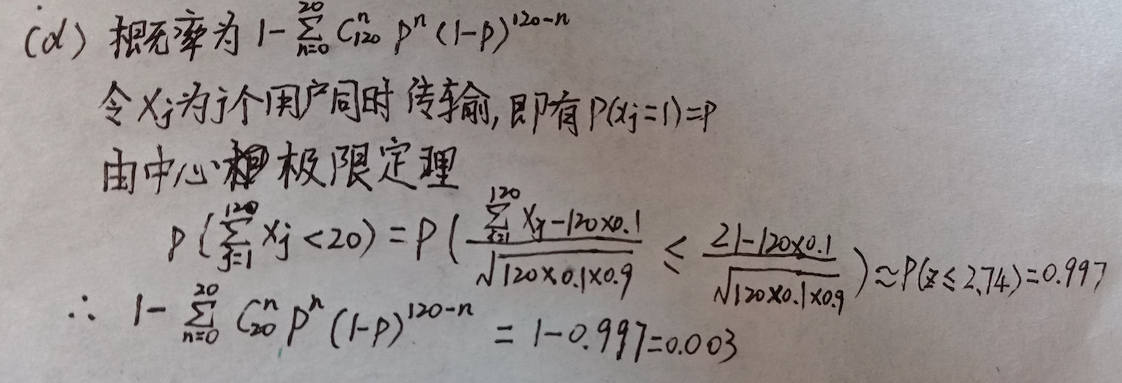 (d) 概率为 1-∑_{n=0}^{20} C_{120}^{n} p^{n} (1-p)^{120-n}
令 Xj为j个用户同时传输,即有P(xj=1)=P
由中心极限定理
P(∑_{j=1}^{120} Xj<20)=P( (∑_{j=1}^{120} Xj-120×0.1)/√(120×0.1×0.9) ≤ (21-120×0.1)/√(120×0.1×0.9) )≈P(z≤2.74)=0.997
∴ 1-∑_{n=0}^{20} C_{20}^{n} p^{n} (1-p)^{120-n} = 1-0.997=0.003